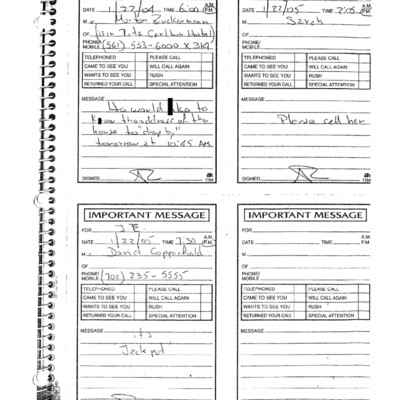 DATE 1/22/04 TIME 6:00 A.M. P.M.
M
OF
PHONE/
MOBILE (561) 553-6000 x 314
TELEPHONED PLEASE CALL
CAME TO SEE YOU WILL CALL AGAIN
WANTS TO SEE YOU RUSH
RETURNED YOUR CALL SPECIAL ATTENTION
MESSAGE
He would like to
know the address of the
house to "stop by,"
tomorrow at 10:45 AM
SIGNED
1184
DATE 1/22/05 TIME 7:05 A.M. P.M.
M
OF
PHONE/
MOBILE
TELEPHONED PLEASE CALL
CAME TO SEE YOU WILL CALL AGAIN
WANTS TO SEE YOU RUSH
RETURNED YOUR CALL SPECIAL ATTENTION
MESSAGE
Please call her
SIGNED
1184
IMPORTANT MESSAGE
FOR J.E.
DATE 1/22/05 TIME 7:30 A.M. P.M.
M David Copperfield
OF
PHONE/
MOBILE (702) 235-5555
TELEPHONED PLEASE CALL
CAME TO SEE YOU WILL CALL AGAIN
WANTS TO SEE YOU RUSH
RETURNED YOUR CALL SPECIAL ATTENTION
MESSAGE
it's
Jackpot
IMPORTANT MESSAGE
FOR
DATE TIME A.M. P.M.
M
OF
PHONE/
MOBILE
TELEPHONED PLEASE CALL
CAME TO SEE YOU WILL CALL AGAIN
WANTS TO SEE YOU RUSH
RETURNED YOUR CALL SPECIAL ATTENTION
MESSAGE